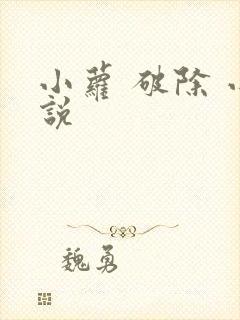 小蘿 破除
說
魏勇